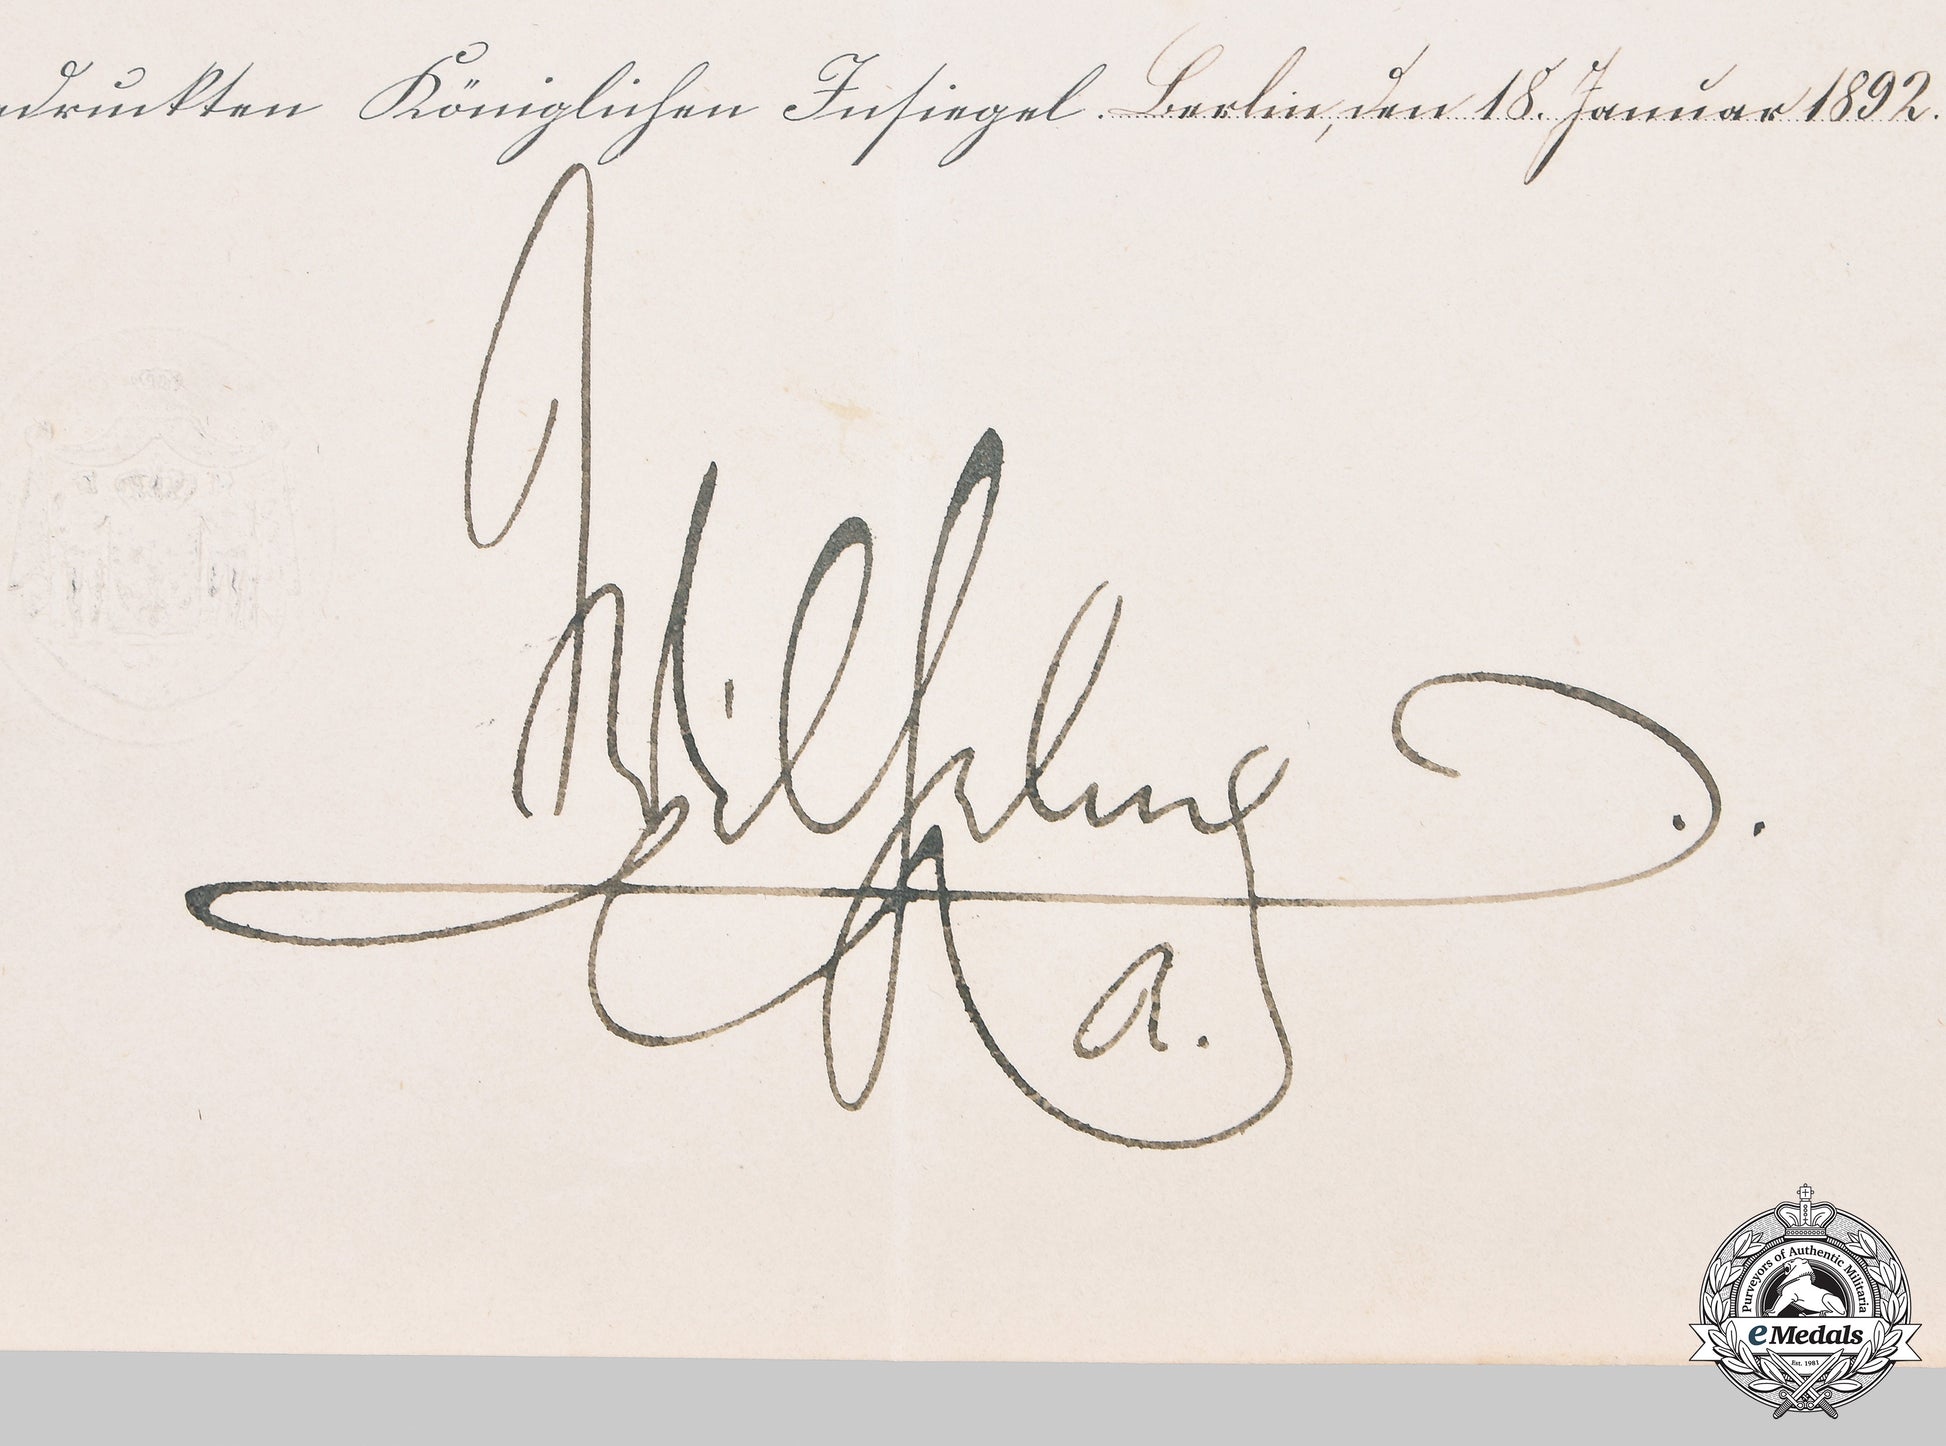 edruckten Königlichen Insiegel. Berlin, den 18. Januar 1892.
Wilhelm
R.
a.
Purveyors of Authentic Militaria
eMedals
Est. 1983